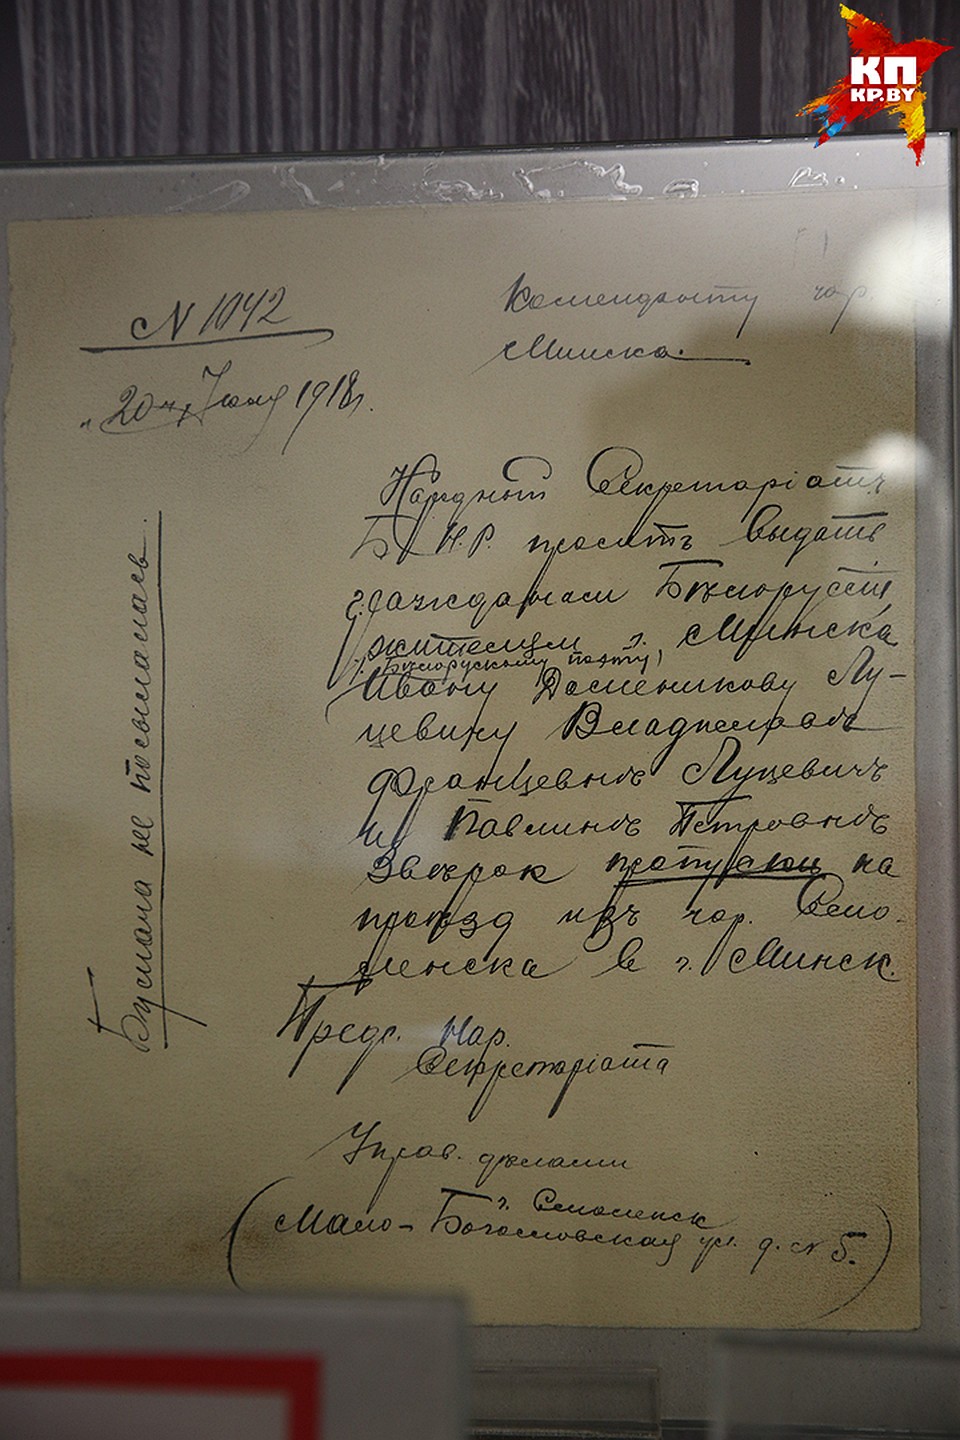 КП
KP.BY
N 1042
Коменданту гор.
Минска.
"20" Июня 1918 г.
Народный Секретаріатъ
Б.Н.Р. проситъ выдать
гражданам Бѣлоруссіи,
жителям г. Минска
(Бѣлорускому поэту)
Ивану Доменикову Лу-
цевичу Владиславѣ
Францевнѣ Луцевичъ
и Павлинѣ Петровнѣ
Звѣрок пропуски на
проѣзд изъ гор. Смо-
ленска в г. Минск.
Предс. Нар.
Секретаріата
Управ. дѣлами
г. Смоленск
(Мало-Богословская ул. д. N 5.)
Бумага не посылалась.